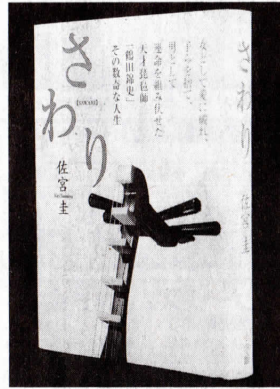 さわり
[SAWARI]
佐宮 圭
女として愛に破れ、
子らを捨て、
男として
運命を組み伏せた
天才琵琶師
「鶴田錦史」
その数奇な人生
さわり
佐宮 圭